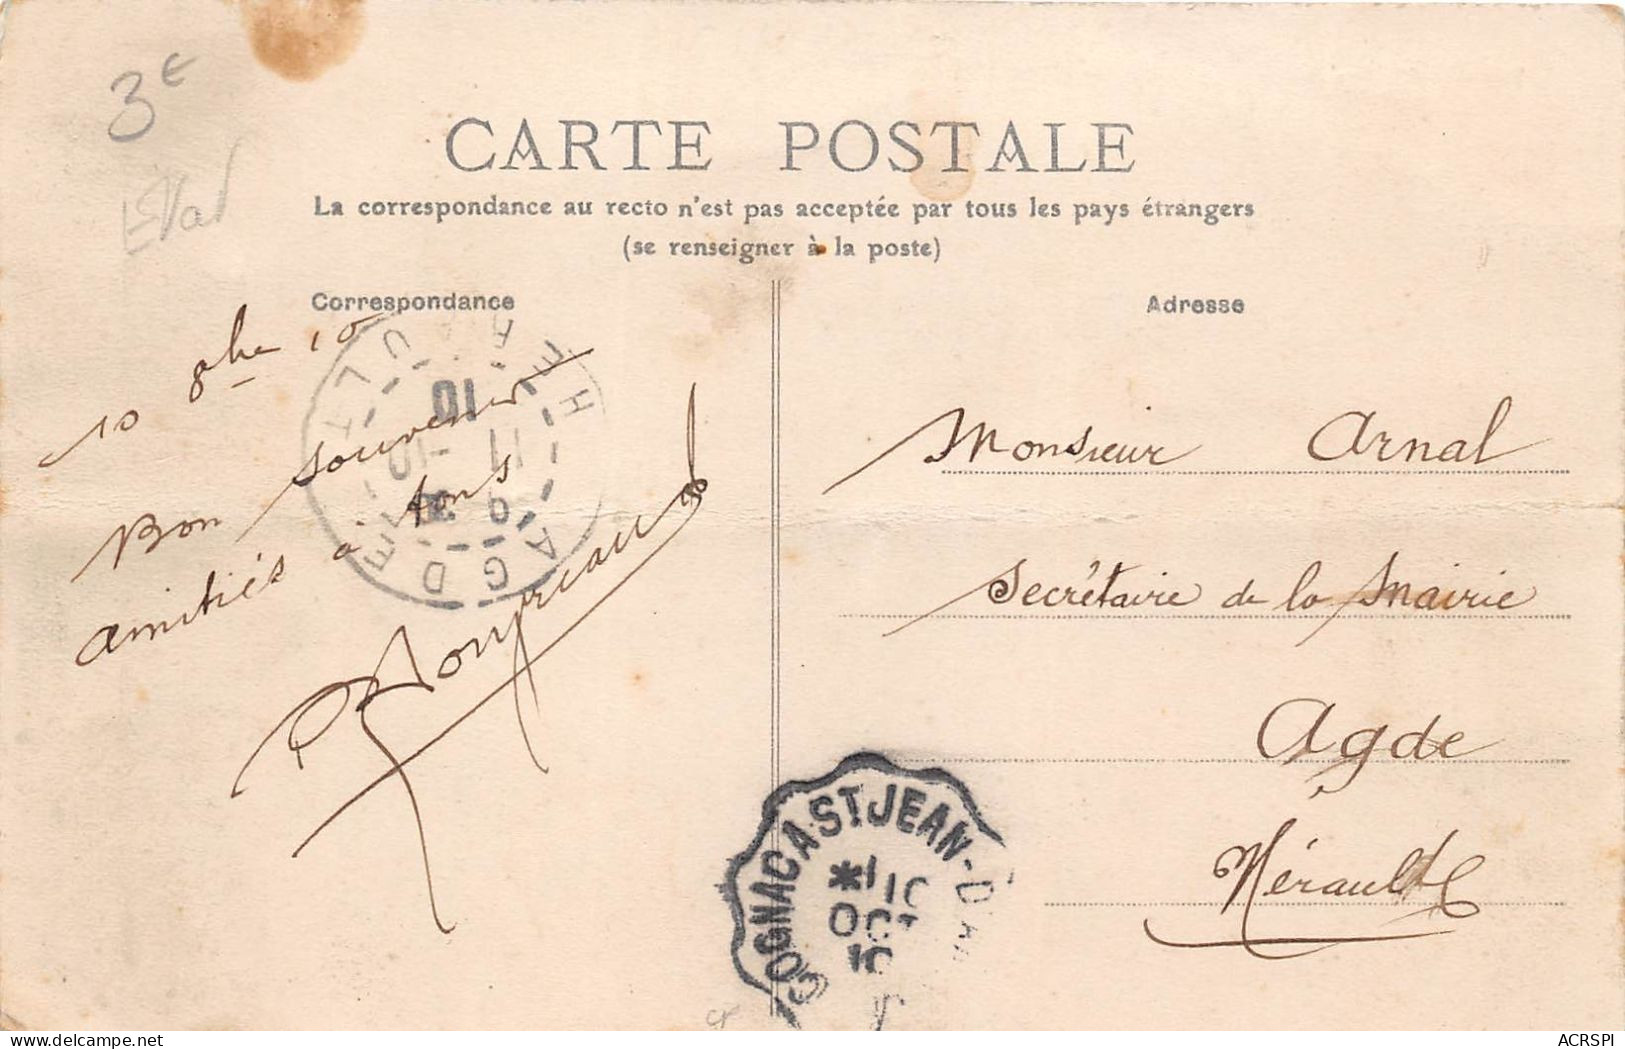 3€
CARTE POSTALE
La correspondance au recto n'est pas acceptée par tous les pays étrangers
(se renseigner à la poste)
Correspondance
10 8bre 10
Bon souvenir
amitiés à tous
Adresse
Monsieur Arnal
Secrétaire de la Mairie
Agde
Hérault
AGDE HERAULT
11 -10
10
COGNAC A ST JEAN-D'AN
OCT
10
delcampe.net
ACRSPI